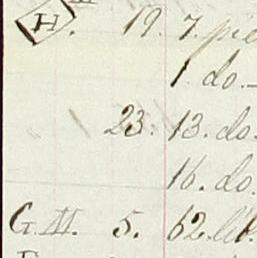 H. 19. 7. pie
1. do.
23. 13. do.
16. do.
G. II. 5. 62. lib.